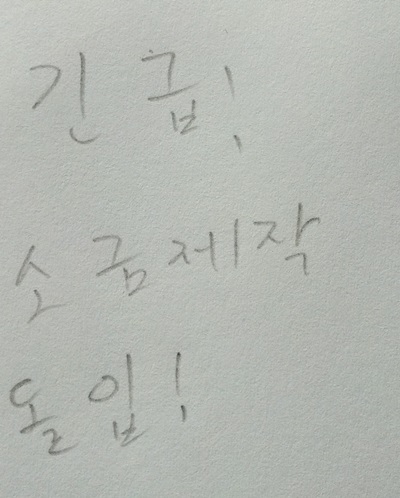 긴급!
소금제작
돌입!